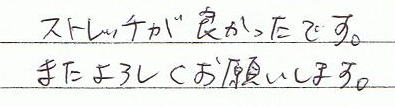 ストレッチが良かったです。
またよろしくお願いします。